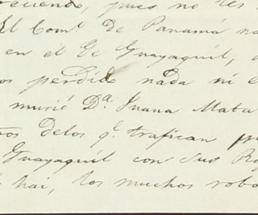 recuendo, pues no les
El Com.te de Panamá no
en el Gl Guayaquil,
os perdido nada ni e
murió D.a Juana Matu
os delos q.e trafican p
Guayaquil con sus Ro
hai, los muchos robo